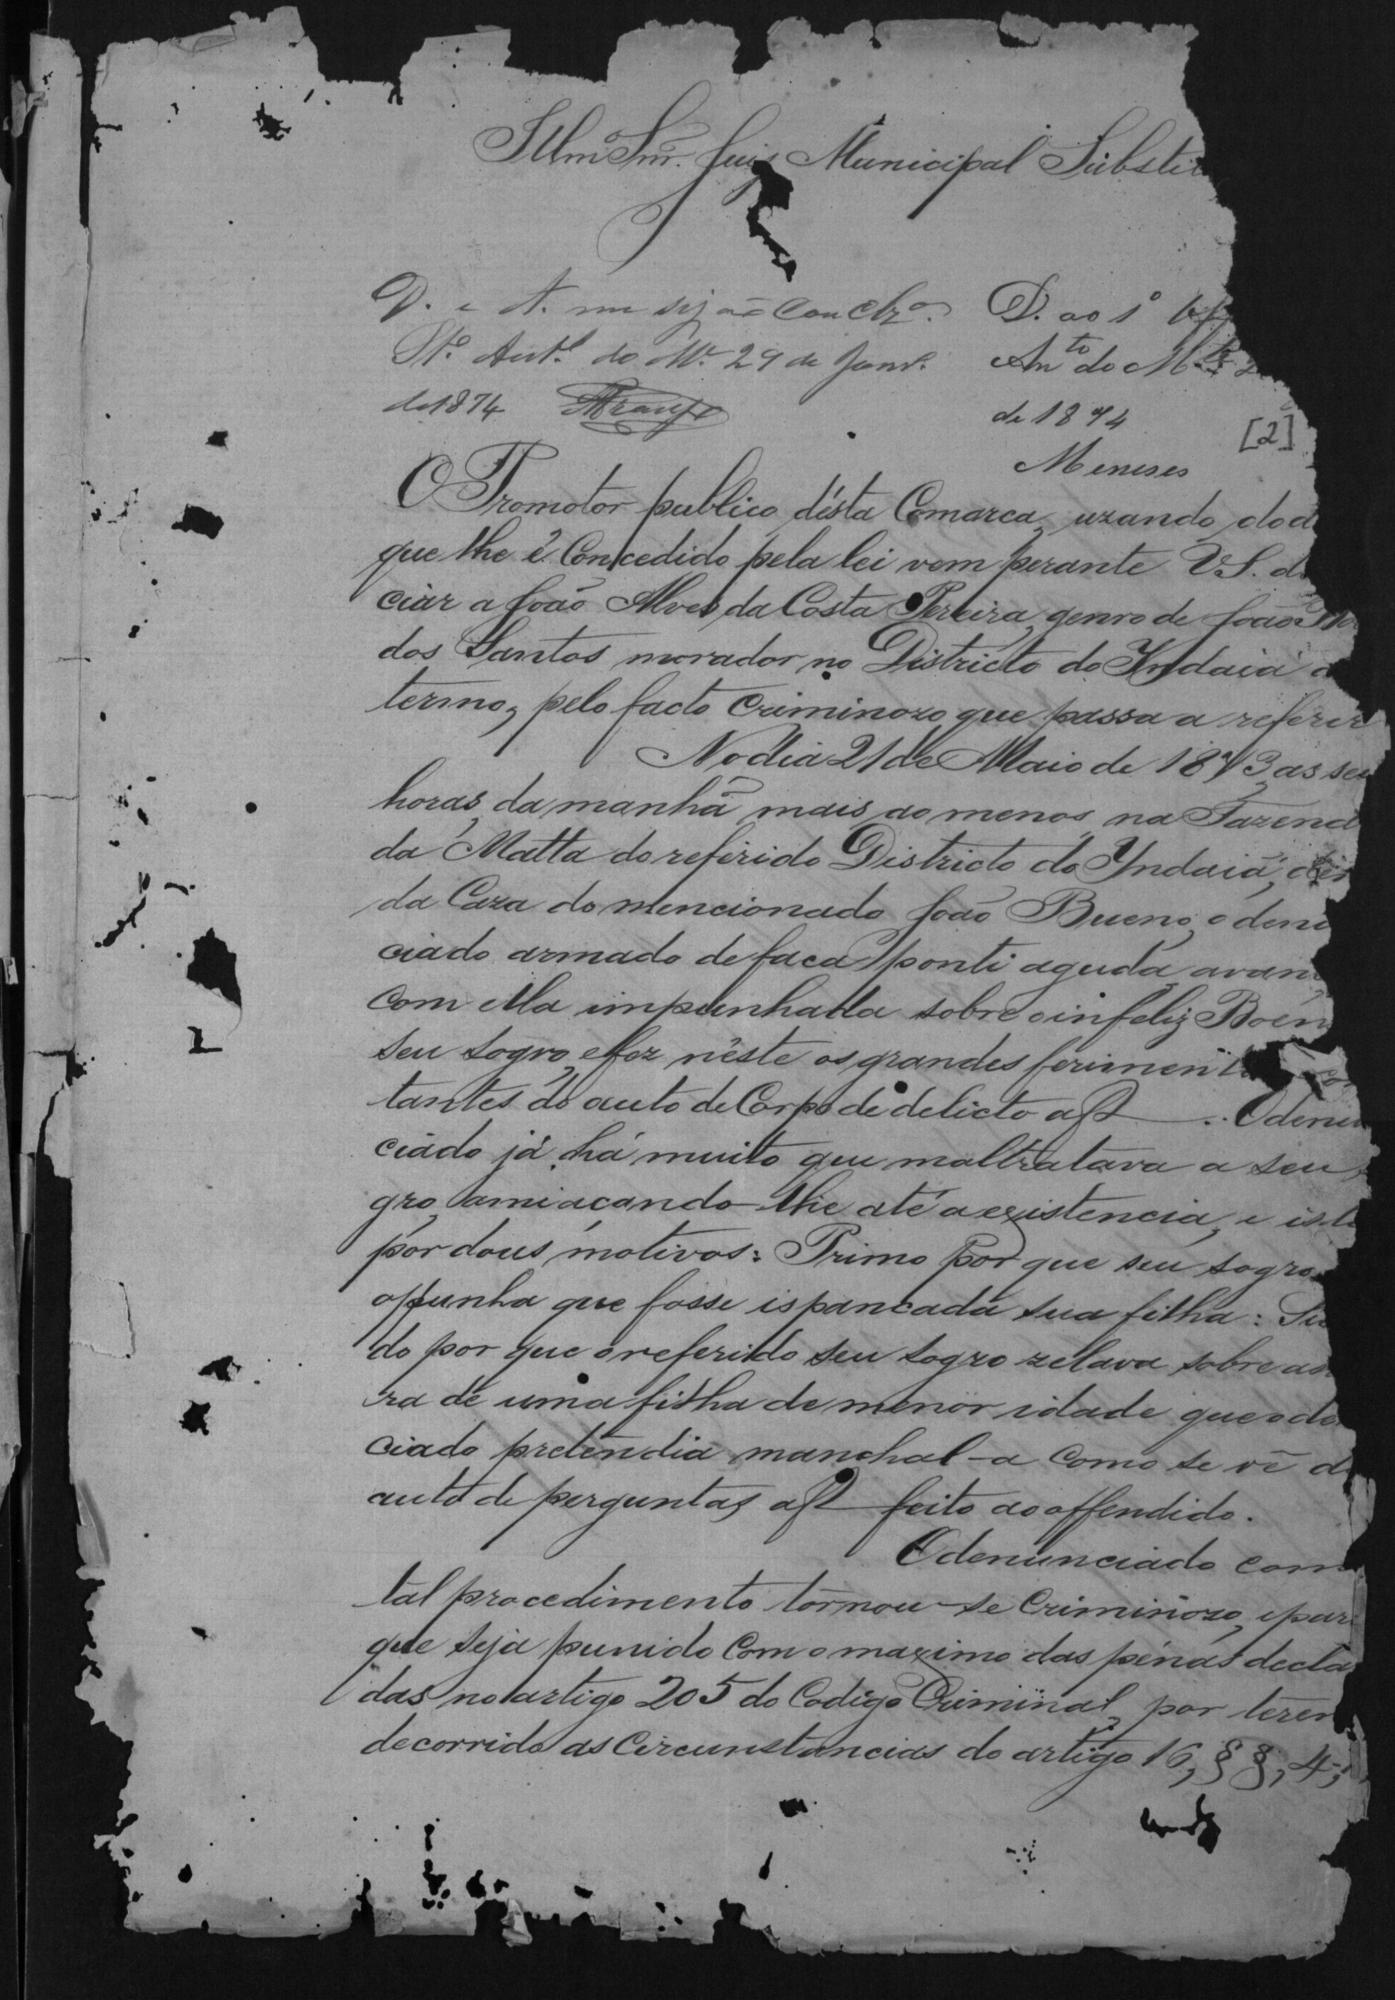 Illmº Snr. Juiz Municipal Substi
D. e A. me sejão concluzº.
Stº Antº do Mte 29 de Janrº.
de 1874 Araujo
D. ao 1º
Antº do Mte 2
de 1874
[2]
Meneses
O Promotor publico désta Comarca, uzando do d
que lhe é concedido pela lei vem perante V.S. d
ciar a João Alves da Costa Pereira, genro de João
dos Santos morador no Districto do Yndaiá d
termo, pelo facto criminozo que passa a referir
No dia 21 de Maio de 1873, as se
horas da manhã mais ao menos, na Fazend
da Matta do referido Districto do Yndaiá, de
da Caza do mencionado João Bueno, o denu
ciado armado de faca ponti aguda avan
com ella impunhada sobre o infeliz Boen
seu sogro, e fez néste os grandes feriment
tantes do auto de Corpo de delicto a f . O denun
ciado já há muito que maltratava a seu
gro, amiaçando-lhe até a existencia, e isto
por dous motivos: Primo por que seu sogro
opunha que fosse ispancada sua filha: Se
do por que o referido seu sogro zelava sobre a
ra de uma filha de menor idade que o de
ciado pretendia manchal-a como se vê d
auto de perguntas a f feito ao offendido.
O denunciado com
tal procedimento tornou-se criminozo, e par
que seja punido com o maximo das pénas decla
das no artigo 205 do Codigo Criminal, por terem
decorrido as circunstancias do artigo 16, § §, 4,